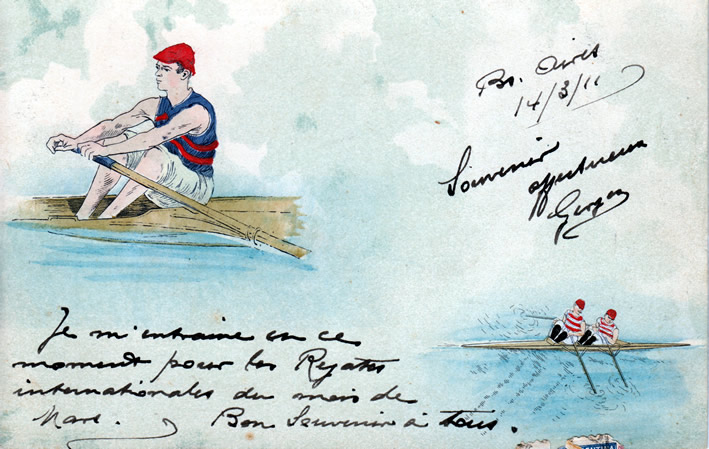 Bs. Aires
14/3/11
Souvenir
affectueux
Je m'entraine en ce
moment pour les Régates
internationales du mois de
Mars. Bon Souvenir à tous.